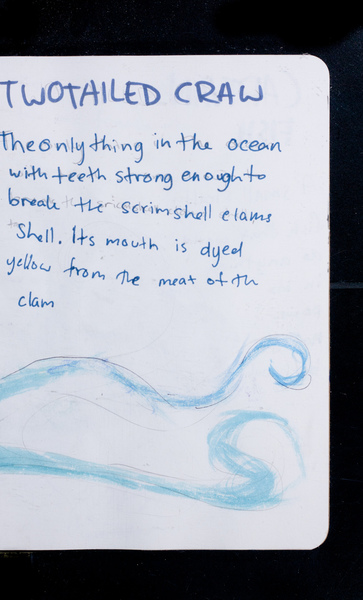 TWOTAILED CRAW
The only thing in the ocean
with teeth strong enough to
break the scrimshell clams
Shell. Its mouth is dyed
yellow from the meat of the
clam